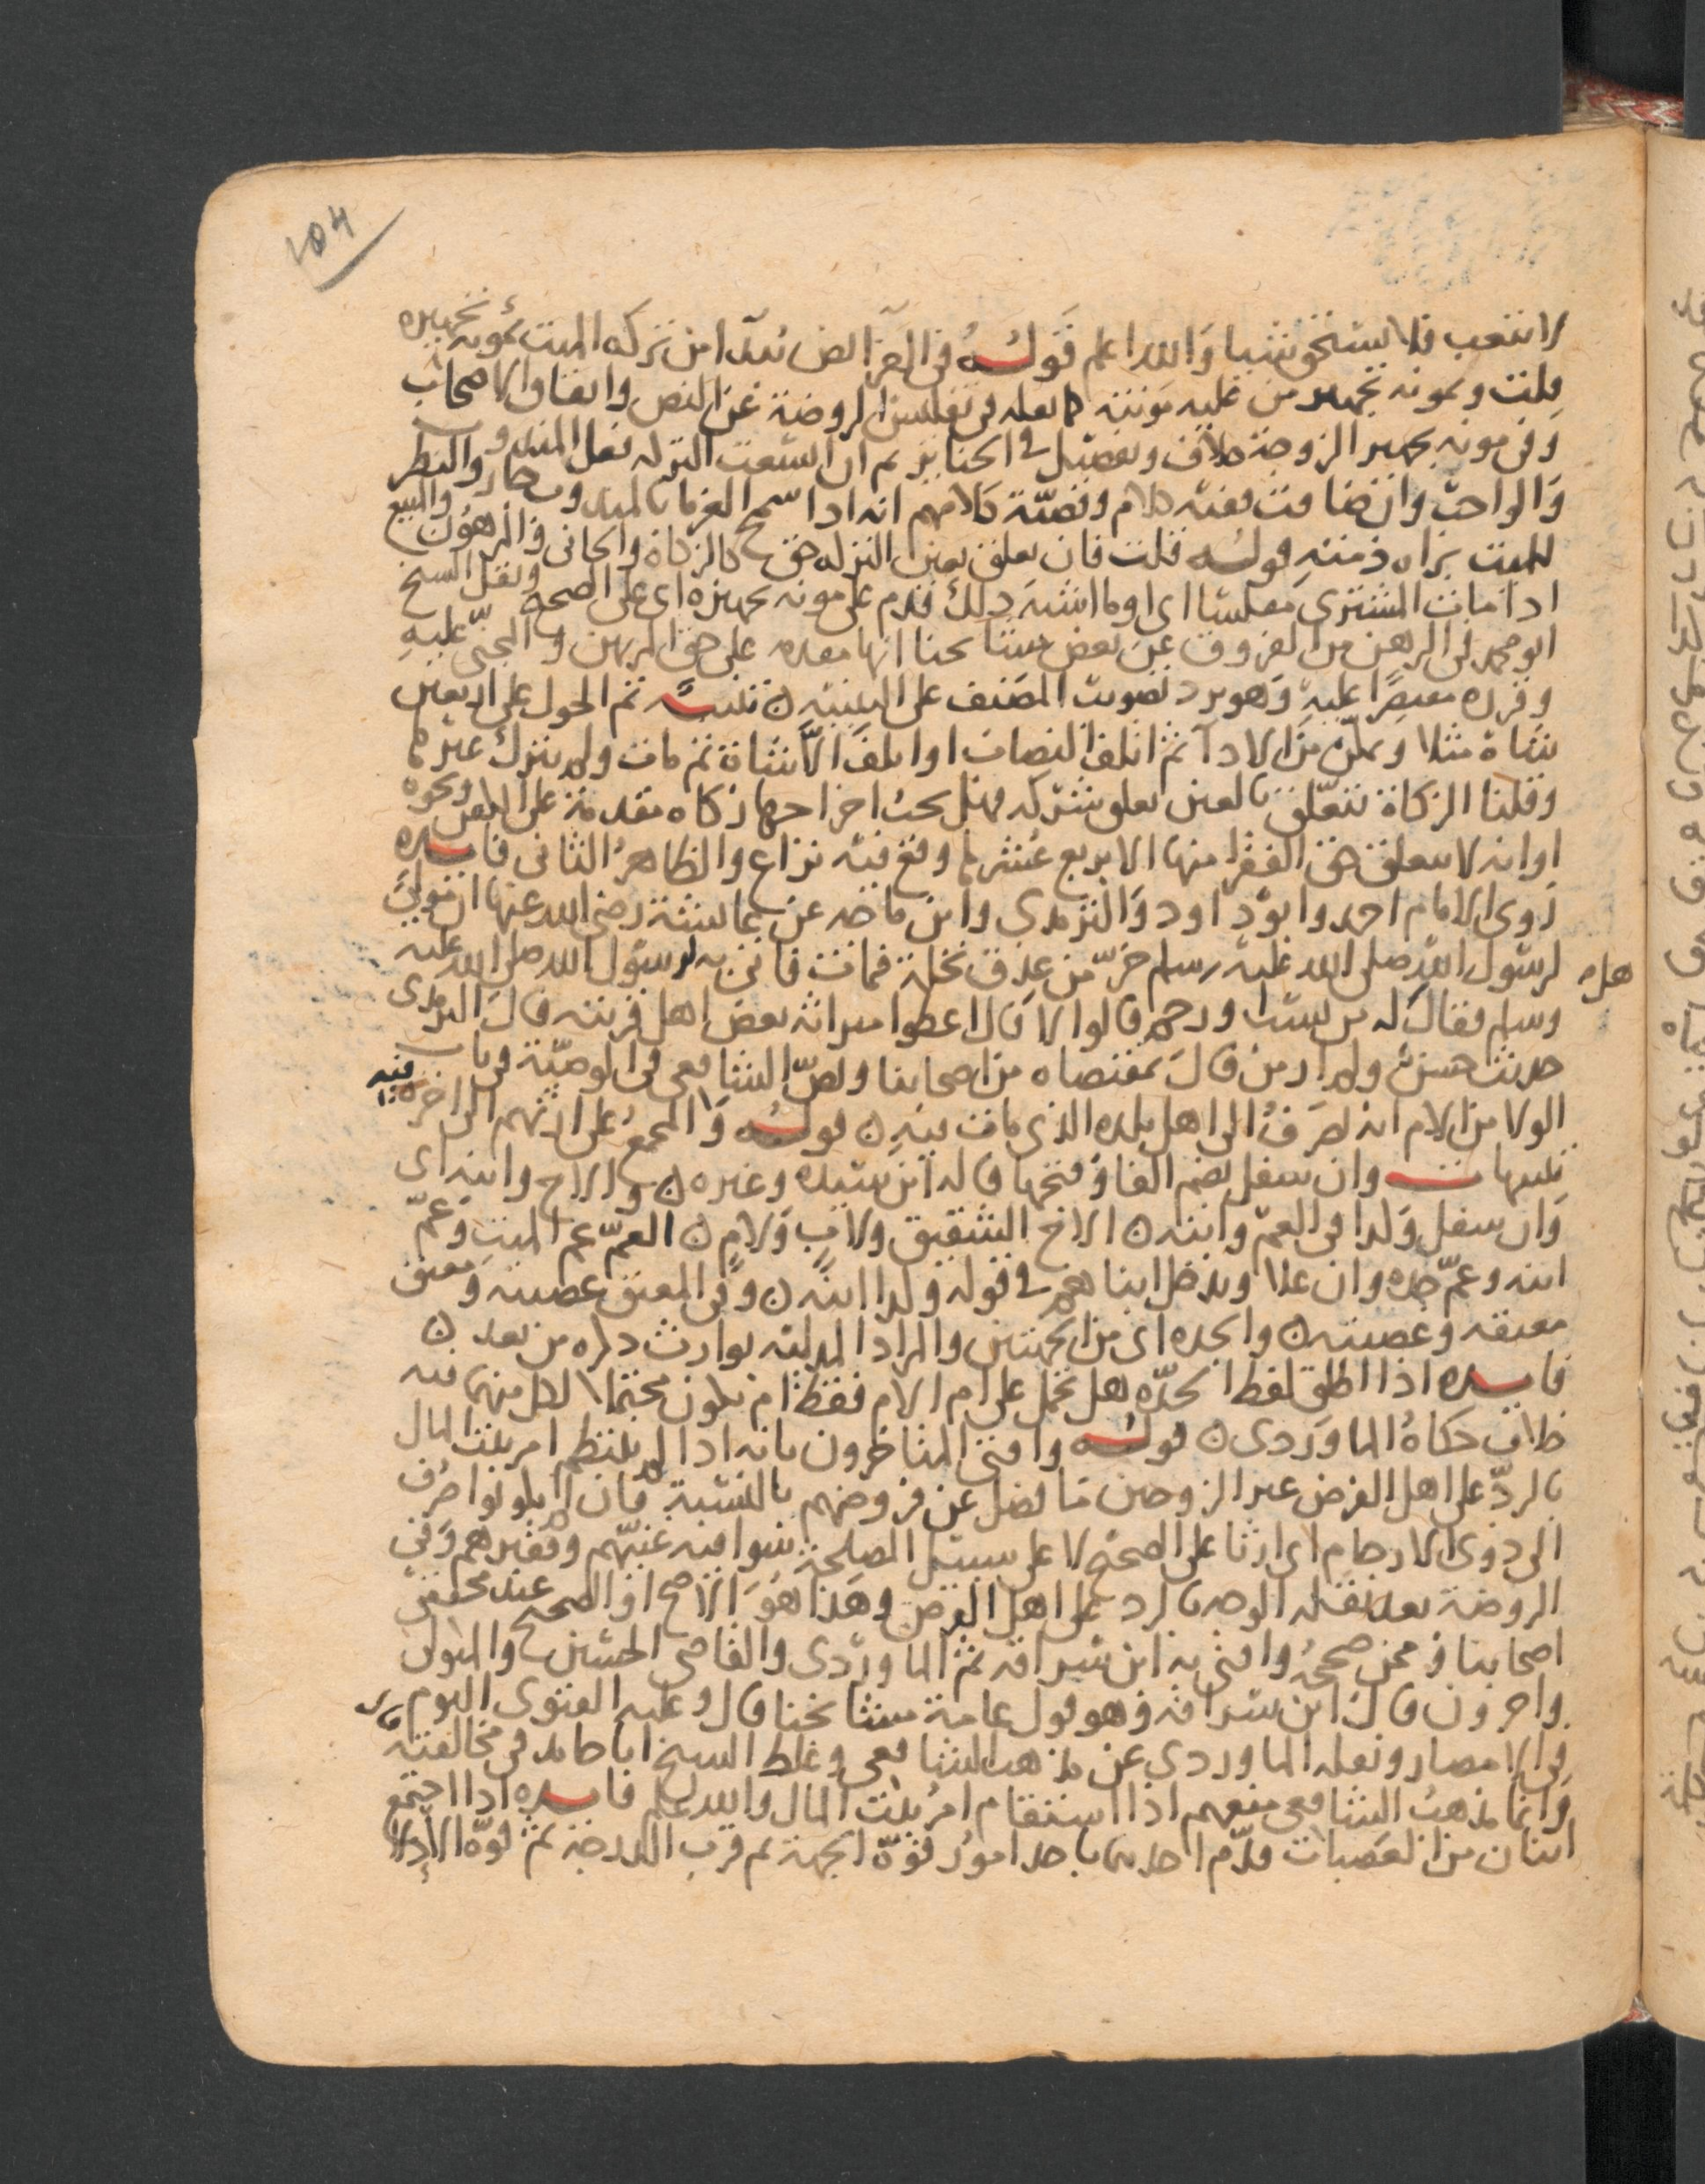 104
لا لتعب فلا يستحق شيا والله اعلم قوله في الفرائض يبدا من تركة الميت بمونة تجهيزه
قلت وبمونة تجهيز من عليه مونته كما نقله في تفليس الروضة عن النص واتفاق الاصحاب
وفي مونة تجهيز الزوجة خلاف وتفصيل في الجنايز ثم ان اتسعت التركة فعل المندوب
والواجب وان ضاقت ففيه كلام وقضية كلامهم انه اذا سمح الغرما بالمندوب جاز والنظر
للميت براه ذمته قوله قلت فان تعلق بعين التركة حق كالزكاة والجاني والمرهون والمبيع
اذا مات المشتري مفلسا اي وما اشبه ذلك قدم على مونة تجهيزه اي على الصحيح ونقل الشيخ
ابو محمد في الرهن من الفروق عن بعض مشايخنا انها مقدمه على حق المرتهن والمجني عليه
وقرره مقتصرا عليه وهو يرد تصويب المصنف على التنبيه ن تنبيه تم الحول على اربعين
شاة مثلا وتمكن من الادا ثم اتلف النصاب او اتلف الا شاة ثم مات ولم يترك غيرها
وقلنا الزكاة تتعلق بالعين تعلق شركة فهل يجب اخراجها زكاه مقدمة على الكفن ونحوه
او انه لا يتعلق حق الفقرا منها الا بربع عشرها وقع فيه نزاع والظاهر الثاني فايده
روى الامام احمد وابو داود والترمذي وابن ماجه عن عايشة رضي الله عنها ان مولى
لرسول الله صلى الله عليه وسلم خر من عذق نخلة فمات فاتي به لرسول الله صلى الله عليه
وسلم فقال له من نسب او رحم قالوا لا قال اعطوا ميراثه بعض اهل قريته قال الترمذي
هل
حديث حسن ولم ار من قال بمقتضاه من اصحابنا ونص الشافعي في الوصية وباب
الولا من الام انه يصرف الى اهل بلده الذي مات فيه ن قوله والمجمع على ارثهم الى اخره فيه
تنبيهات وان سفل بضم الفا وفتحها قاله ابن سيده وغيره ن والاخ وابنه اي
وان سفل وكذا في العم وابنه ن الاخ الشقيق ولاب ولام ن العم عم الميت وعم
ابيه وعم جده وان علا ويدخل ابناهم في قوله وكذا ابنه ن وفي المعتق عصبته ومعتق
معتقه وعصبته ن والجده اي من الجهتين والمراد المدلية بوارث ذكره من بعد ن
فايده اذا اطلق لفظ الجدة هل تحمل على ام الام فقط ام يكون محتملا لكل منهما فيه
خلاف حكاه الماوردي ن قوله وافتى المتاخرون بانه اذا لم ينتظم امر بيت المال
بالرد على اهل الفرض غير الزوجين ما فضل عن فروضهم بالنسبة فان لم يكونوا صرف
الى ذوي الارحام اي ارثا على الصحيح لا على سبيل المصلحة سوا فيه غنيهم وفقيرهم وفي
الروضة بعد نقله الوجه بالرد على اهل الفرض وهذا هو الاصح او الصحيح عند محققي
اصحابنا وممن صححه وافتى به ابن سراقه ثم الماوردي والقاضي الحسين والمتولي
واخرون قال ابن سراقه وهو قول عامة مشايخنا قال وعليه الفتوى اليوم
في الامصار ونقله الماوردي عن مذهب الشافعي وغلط الشيخ ابا حامد في مخالفته قال
وانما مذهب الشافعي منعهم اذا استقام امر بيت المال والله اعلم فايده اذا اجتمع
اثنان من العصبات قدم احدهما باحد امور قوة الجهة ثم قرب الدرجة ثم قوة الادلا